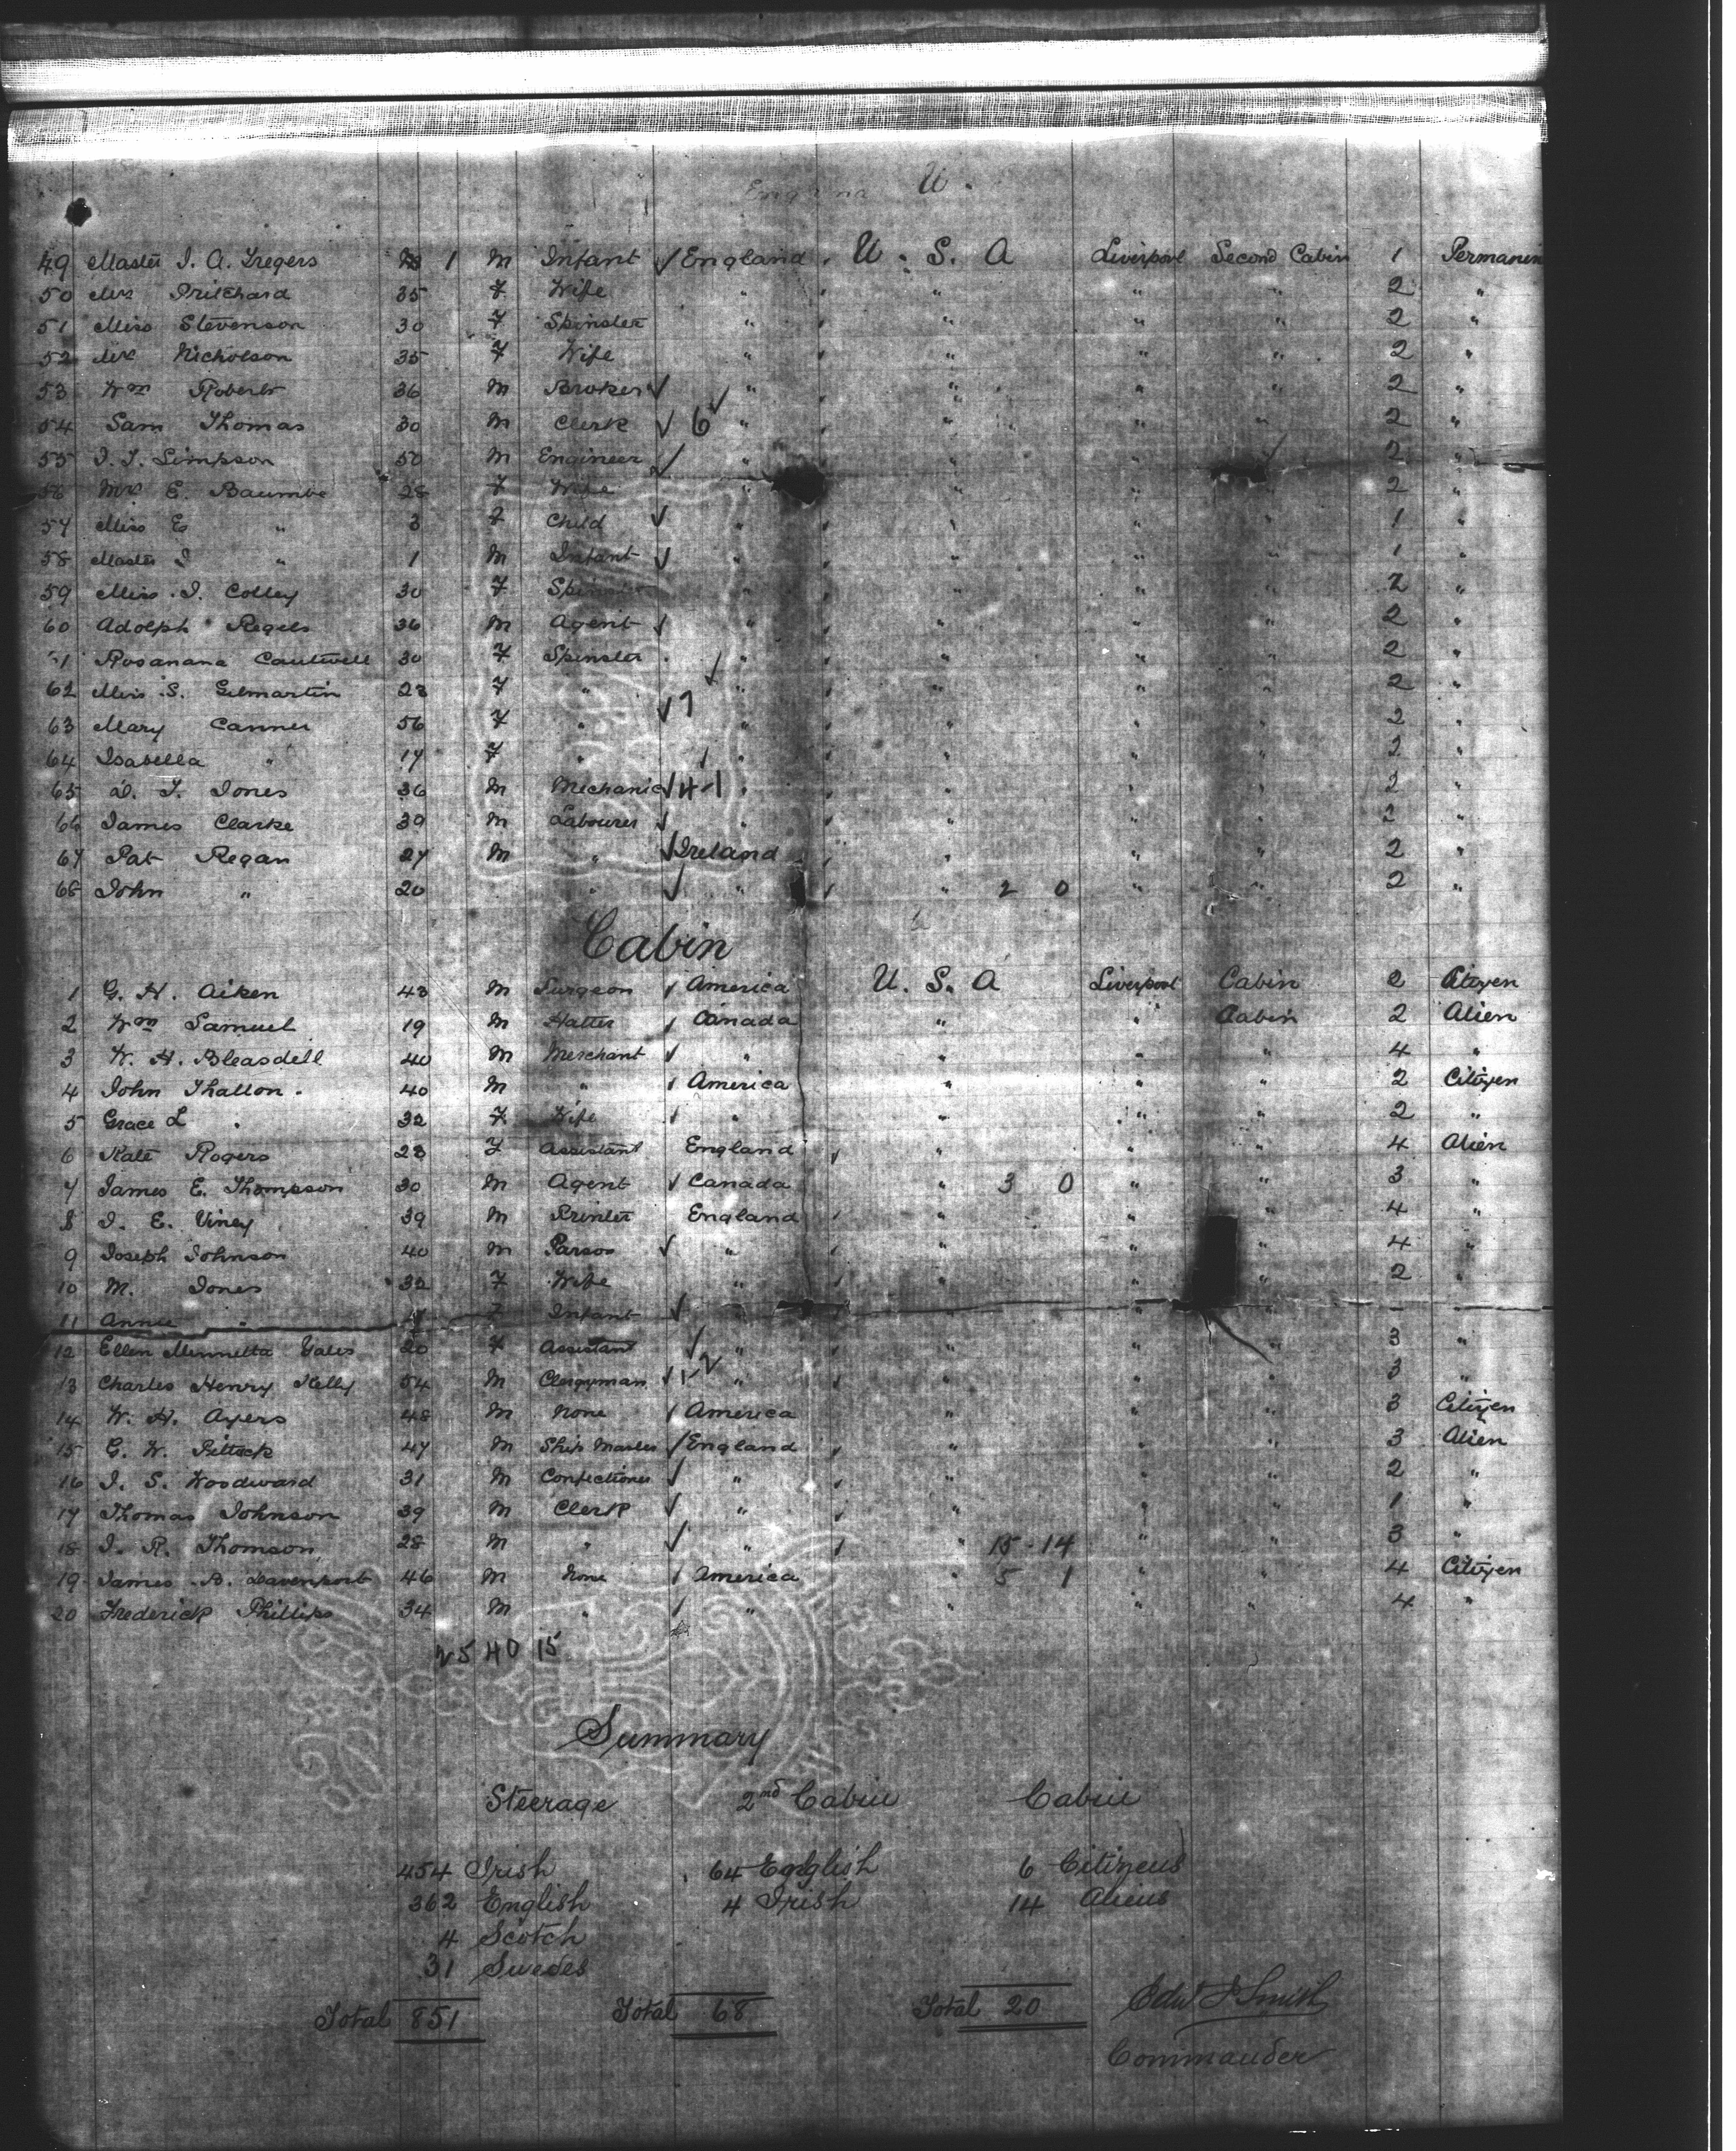 U.
49 Master I. A. Tregers 1 M Infant England U. S. A Liverpool Second Cabin 1 Permanen
50 Mrs Pritchard 35 F Wife " " " " 2 "
51 Miss Stevenson 30 F Spinster " " " " 2 "
52 Mrs Nicholson 35 F Wife " " " " 2 "
53 Wm Roberts 36 M Broker " " " " 2 "
54 Sam Thomas 30 M Clerk 6 " " " " 2 "
55 I. T. Simpson 50 M Engineer " " " 2 "
56 Mrs E. Baumbe 28 F Wife " " " " 2 "
57 Miss E " 3 F Child " " " " 1 "
58 Master I " 1 M Infant " " " " 1 "
59 Miss I. Colley 30 F Spinster " " " " 2 "
60 Adolph Regels 36 M Agent " " " " 2 "
61 Rosanana Cautwell 30 F Spinster " " " " 2 "
62 Miss S. Gilmartin 28 F " " " " " 2 "
63 Mary Canner 56 F " 7 " " " " 2 "
64 Isabella " 17 F " " " " " 2 "
65 D. T. Jones 36 M Mechanic 41 " " " 2 "
66 James Clarke 39 M Labourer " " " " 2 "
67 Pat Regan 27 M " Ireland " " " 2 "
68 John " 20 " " " 2 0 " " 2 "
Cabin
1 G. H. Aiken 43 M Surgeon America U. S. A Liverpool Cabin 2 Citizen
2 Wm Samuel 19 M Hatter Canada " " Cabin 2 Alien
3 W. H. Bleasdell 40 M Merchant " " " " 4 "
4 John Thallon 40 M " America " " " 2 Citizen
5 Grace L " 32 F Wife " " " " 2 "
6 Kate Rogers 23 F Assistant England " " " 4 Alien
7 James E. Thompson 30 M Agent Canada " 3 0 " " 3 "
8 I. E. Viney 39 M Printer England " " " 4 "
9 Joseph Johnson 40 M Parson " " " " 4 "
10 M. Jones 32 F Wife " " " " 2 "
11 Annie " F Infant " " " " - "
12 Ellen Minnetta Gales 20 F Assistant " " " " 3 "
13 Charles Henry Kelly 54 M Clergyman " " " " 3 "
14 W. H. Ayers 48 M None America " " " 3 Citizen
15 G. W. Pittack 47 M Ship Master England " " " 3 Alien
16 I. S. Woodward 31 M Confectioner " " " " 2 "
17 Thomas Johnson 39 M Clerk " " " " 1 "
18 I. R. Thomson 28 M " " " 15-14 " " 3 "
19 James A. Davenport 46 M None America " 5 1 " " 4 Citizen
20 Frederick Phillips 34 M " " " " 4 "
25 40 15
Summary
Steerage 2nd Cabin Cabin
454 Irish 64 English 6 Citizens
362 English 4 Irish 14 Aliens
4 Scotch
31 Swedes
Total 851 Total 68 Total 20 Edw J Smith
Commander